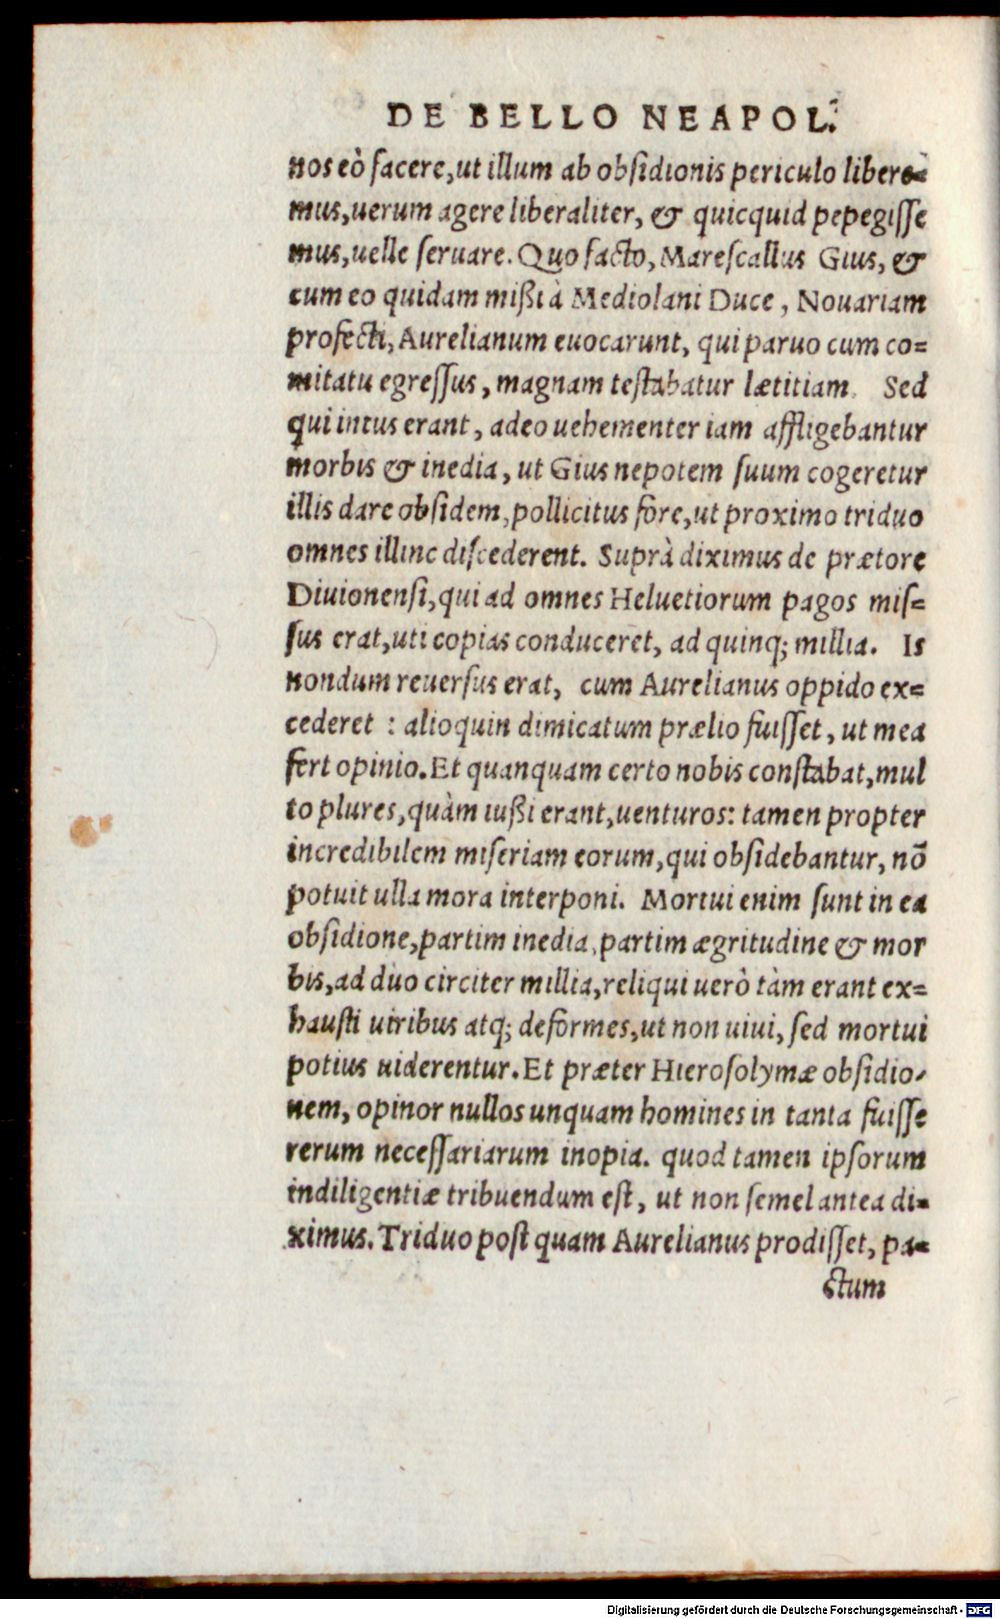 DE BELLO NEAPOL.
nos eò facere, ut illum ab obsidionis periculo libere=
mus, uerum agere liberaliter, & quicquid pepegisse
mus, uelle seruare. Quo facto, Marescallus Gius, &
cum eo quidam mißi à Mediolani Duce, Nouariam
profecti, Aurelianum euocarunt, qui paruo cum co=
mitatu egressus, magnam testabatur lætitiam. Sed
qui intus erant, adeo uehementer iam affligebantur
morbis & inedia, ut Gius nepotem suum cogeretur
illis dare obsidem, pollicitus fore, ut proximo triduo
omnes illinc discederent. Suprà diximus de prætore
Diuionensi, qui ad omnes Heluetiorum pagos mis=
sus erat, uti copias conduceret, ad quinq; millia. Is
nondum reuersus erat, cum Aurelianus oppido ex=
cederet : alioquin dimicatum prælio fuisset, ut mea
fert opinio. Et quanquam certo nobis constabat, mul
to plures, quàm iußi erant, uenturos: tamen propter
incredibilem miseriam eorum, qui obsidebantur, nō
potuit ulla mora interponi. Mortui enim sunt in ea
obsidione, partim inedia, partim ægritudine & mor
bis, ad duo circiter millia, reliqui uerò tàm erant ex=
hausti uiribus atq; deformes, ut non uiui, sed mortui
potius uiderentur. Et præter Hierosolymæ obsidio-
nem, opinor nullos unquam homines in tanta fuisse
rerum necessariarum inopia. quod tamen ipsorum
indiligentiæ tribuendum est, ut non semel antea di=
ximus. Triduo post quam Aurelianus prodisset, pa=
ctum
Digitalisierung gefördert durch die Deutsche Forschungsgemeinschaft - DFG